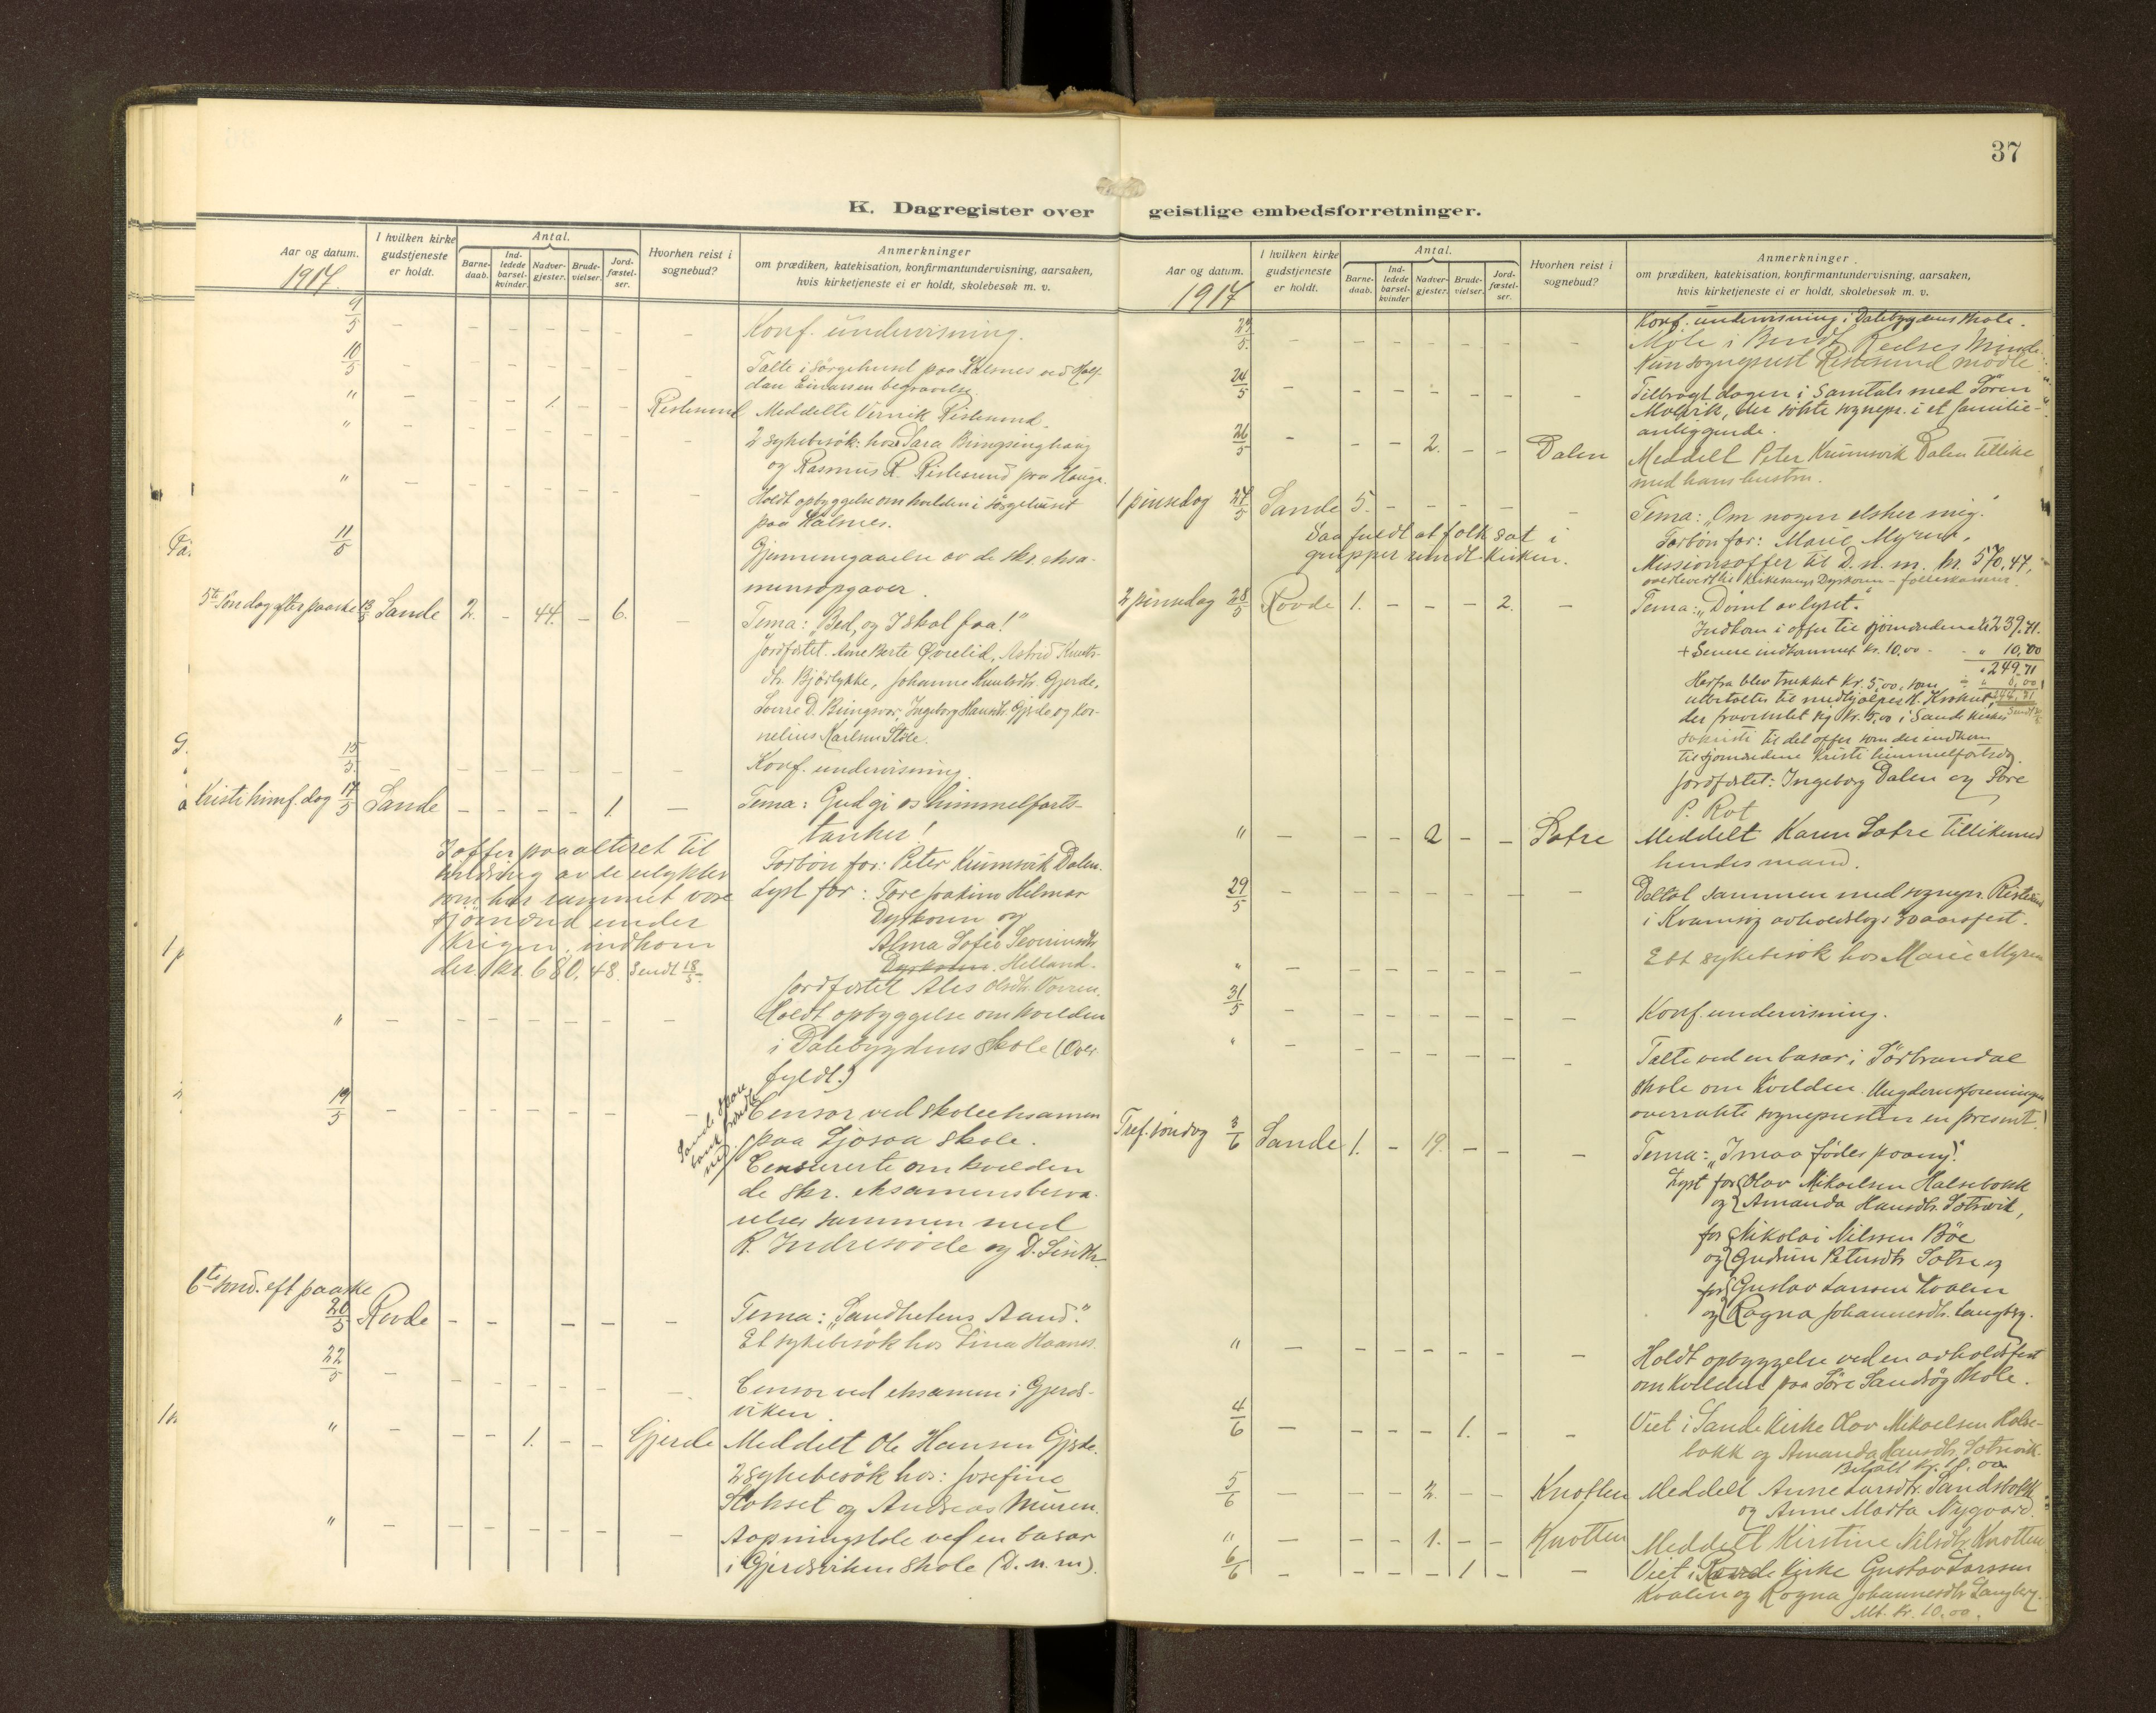 37
K. Dagregister over geistlige embedsforretninger.
Aar og datum.
1917.
I hvilken kirke gudstjeneste er holdt.
Antal.
Barne-daab.
Ind-ledede barsel-kvinder.
Nadver-gjester.
Brude-vielser.
Jord-fæstel-ser.
Hvorhen reist i sognebud?
Anmerkninger
om prædiken, katekisation, konfirmantundervisning, aarsaken,
hvis kirketjeneste ei er holdt, skolebesøk m. v.
9/5 – – – – – – – Konf. undervisning.
10/5 – – – – – – – Talte i sörgehuset paa Halsnes ved Half-
dan Einarsen begravelse.
" – – – 1. – – Ristesund Meddelte Vernik Ristesund.
" – – – – – – – 2 sykebesök: hos Sara
og Rasmus R. Ristesund paa Hauge.
" – – – – – – – Holdt opbyggelse om kvelden i sörgehuset
paa Halsnes.
11/5 Gjennemgaaelse av de skr. eksa-
mensopgaver.
5te Søndag efter paaske 13/5 Sande 2. – 44. – 6. – Tema: "Bed, og I skal faa!"
Jordfæstet. Ane Berte Øvrelid, Astrid Knuts-
dtr. Bjørlykke, Johanne Knutsdtr. Gjerde,
Sverre D. Bringsvor, Ingeborg Hansdtr. Gjerde og Kor-
nelius Karlsen Støle.
15/5 – – – – – – – Konf. undervisning.
Kristi himf. dag 17/5 Sande – – – – 1. – Tema: Gud gi os himmelfarts-
tanker!
I offer paa alteret til
av de ulykker
som har rammet vore
sjömænd under
krigen, indkom
der kr. 680,48. Sendt 18/5.
Forbön for: Peter Krumsvik Dalen.
Lyst for: Tore Joakim Hilmar
Dyrkorn og
Alma Sofie Severinsdtr.
Dyrkorn. Helland.
Jordfæstet Ales Olsdtr. Vorren.
" – – – – – – – Holdt opbyggelse om kvelden
i Dalebygdens skole (Over-
fyldt.)
19/5 – – – – – – – Censor ved skoleeksamen
paa Ljosaa skole.
Censurerte om kvelden
de skr. eksamensbesva-
relser sammen med
R. Indresøvde og D.
6te sönd. eft paaske
20/5 Rovde – – – – – Tema: "Sandhetens Aand."
Et sykebesök hos Lina Haanes.
22/5 – – – – – – – Censor ved eksamen i Gjerds-
viken.
" – – – 1. – – Gjerde Meddelt Ole Hansen Gjerde.
2 sykebesök hos: Josefine
Stokset og Andreas Muren.
" – – – – – – – Aapningstale ved en basar
i Gjerdsvikens skole (D. n. m).
Aar og datum.
1917
I hvilken kirke gudstjeneste er holdt.
Antal.
Barne-daab.
Ind-ledede barsel-kvinder
Nadver-gjester.
Brude-vielser.
Jord-fæstel-ser.
Hvorhen reist i sognebud?
Anmerkninger.
om prædiken, katekisation, konfirmantundervisning, aarsaken,
hvis kirketjeneste ei er holdt, skolebesøk m. v.
Konf. undervisning i Dalebygdens skole.
23/5. – – – – – – – Möte i Bendt Reelses Minde.
Kun sognepræst Ristesund mödte
24/5 – – – – – – – Tilbragt dagen i samtale med Sören
Molvik, der sökte sognepr. i et familie-
anliggende.
26/5 – – – 2. – – Dalen Meddelt Peter Krumsvik Dalen tillike
med hans hustru.
1 pinsedag 27/5 Sande 5. – – – – – Tema: "Om nogen elsker mig."
Saa fuldt at folk sat i
grupper rundt kirken.
Forbön for: Marie Myren.
Missionsoffer til D. n. m. kr. 570,47,
overlevert til Kirkesanger Dyrkorn – fælleskassen.
2 pinsedag 28/5 Rovde 1. – – – 2. – Tema: "Dömt av lyset."
Indkom i offer til sjömændene kr 239.71.
+ Senere indkommet kr. 10,00 – " 10,00
" 249.71
Herfra blev trukket kr. 5,00, som " 5,00
utbetaltes til medhjælper
244,71
der fravendet kr. 5,00 i Sande kirkes
sakristi til det offer som der indkom
til sjömændene Kristi himmelfartsdag.
Jordfæstet: Ingeborg Dalen og Tore
P. Rot
" – – – 2 – – Sætre Meddelt Karen Sætre tillikemed
hendes mand.
29/5 – – – – – – – Deltat sammen med sognepr. Ristesund
i Kvamsöy avholdslags aarsfest.
" – – – – – – – Ett sykebesök hos Marie Myren
31/5 – – – – – – – Konf. undervisning.
" – – – – – – – Talte ved en basar i Sörbrandal
skole om kvelden. Ungdomsforeningen
overrakte sognepresten en present!
Tref. söndag 3/6 Sande 1. – 19. – – – Tema: "I maa födes paany."
Lyst for Olav Mikaelsen Halsebakk
og Amanda Hansdtr. Sætrevik,
for Nikolai Nilssen Böe
og Gudrun Petersdtr. Sætre og
for Gustav Larssen Kvalen
og Ragna Johannesdtr. Langtry.
" – – – – – – – Holdt opbyggelse ved en avholdsfest
om kvelden paa Söre Sandsöy skole.
4/6 – – – – 1. – – Viet i Sande Kirke Olav Mikaelsen Halse-
bakk og Amanda Hansdtr. Sætrevik.
5/6 – – – 2. – – Knotten Meddelt Anne Larsdtr. Sandsbakk
og Anne Marta Nygaard.
" – – – 1. – – Knotten Meddelt Kirstine Nilsdtr. Knotten
6/6 – – – – 1 – – Viet i Rovde kirke Gustav Larssen
Kvalen og Ragna Johannesdtr. Langtry.
Mt. kr. 10.00.